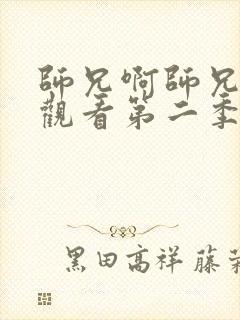 師兄啊師兄
觀看第二季
黑田高祥 藤